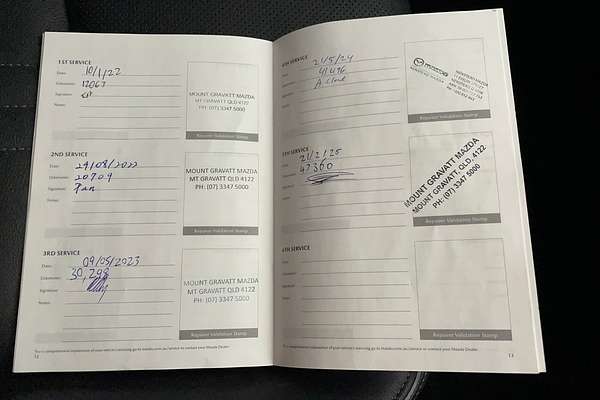 1ST SERVICE
Date: 10/1/22
Odometer: 12067
Signature:
Notes:
MOUNT GRAVATT MAZDA
MT GRAVATT QLD 4122
PH: (07) 3347 5000
Repairer Validation Stamp
2ND SERVICE
Date: 29/08/2022
Odometer: 20709
Signature:
Notes:
MOUNT GRAVATT MAZDA
MT GRAVATT QLD 4122
PH: (07) 3347 5000
Repairer Validation Stamp
3RD SERVICE
Date: 09/05/2023
Odometer: 30,298
Signature:
Notes:
MOUNT GRAVATT MAZDA
MT GRAVATT QLD 4122
PH: (07) 3347 5000
Repairer Validation Stamp
12
4TH SERVICE
21/5/24
41476
Notes:
mazda
Repairer Validation Stamp
5TH SERVICE
21/2/25
47360
Notes:
MOUNT GRAVATT MAZDA
MOUNT GRAVATT, QLD, 4122
PH: (07) 3347 5000
Repairer Validation Stamp
6TH SERVICE
Date:
Odometer:
Signature:
Notes:
Repairer Validation Stamp
13